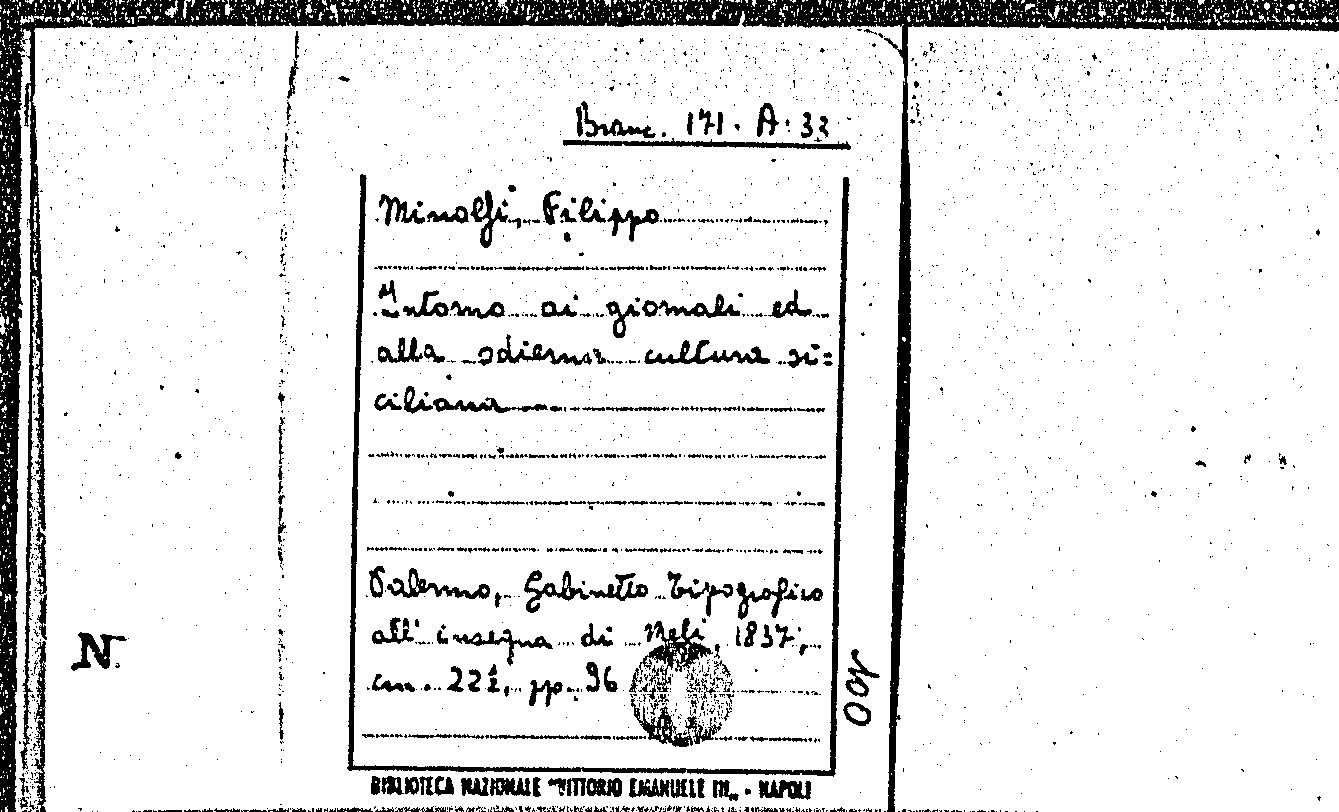 Branc. 171. A. 32
Minolfi, Filippo
Intorno ai giornali ed
alla odierna cultura si=
ciliana
Palermo, Gabinetto Tipografico
all' insegna di Meli, 1837,
cm. 22½, pp. 96
N.
BIBLIOTECA NAZIONALE "VITTORIO EMANUELE III„ - NAPOLI